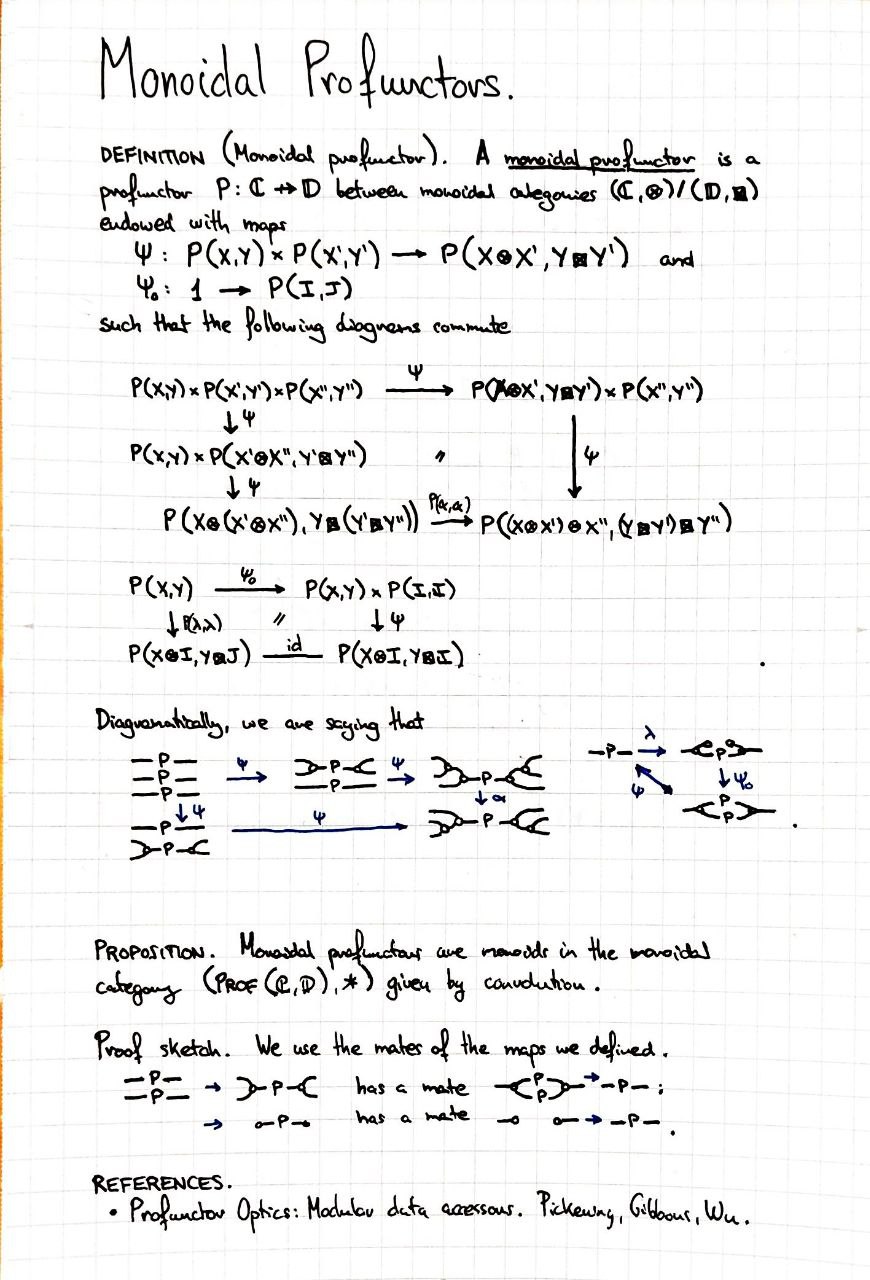 Monoidal Profunctors.
DEFINITION (Monoidal profunctor). A monoidal profunctor is a
profunctor P: ℂ ⇸ 𝔻 between monoidal categories (ℂ,⊗)/(𝔻,⊠)
endowed with maps
ψ: P(X,Y) × P(X',Y') → P(X⊗X', Y⊠Y') and
ψ₀: 1 → P(I,J)
such that the following diagrams commute
P(X,Y) × P(X',Y') × P(X'',Y'') ψ→ P(X⊗X', Y⊠Y') × P(X'',Y'')
↓ψ
P(X,Y) × P(X'⊗X'', Y'⊠Y'') // ↓ψ
↓ψ
P(X⊗(X'⊗X''), Y⊠(Y'⊠Y'')) P(α,α)→ P((X⊗X')⊗X'', (Y⊠Y')⊠Y'')
P(X,Y) ψ₀→ P(X,Y) × P(I,I)
↓P(λ,λ) // ↓ψ
P(X⊗I, Y⊠J) id P(X⊗I, Y⊠I) .
Diagramatically, we are saying that
P P λ→ P
P ψ→ P ψ→ P ψ ↓ψ₀
P P ↓α P
↓ψ P
P ψ→ P .
P
PROPOSITION. Monoidal profunctors are monoids in the monoidal
category (PROF(ℂ,𝔻),*) given by convolution.
Proof sketch. We use the mates of the maps we defined.
P P
P → P has a mate P → P ;
→ P has a mate → P .
REFERENCES.
• Profunctor Optics: Modular data accessors. Pickering, Gibbons, Wu.